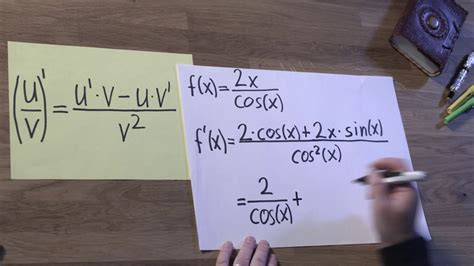 (u/v)' = u'·v − u·v' / v²
f(x) = 2x / cos(x)
f'(x) = 2·cos(x) + 2x·sin(x) / cos²(x)
= 2 / cos(x) +